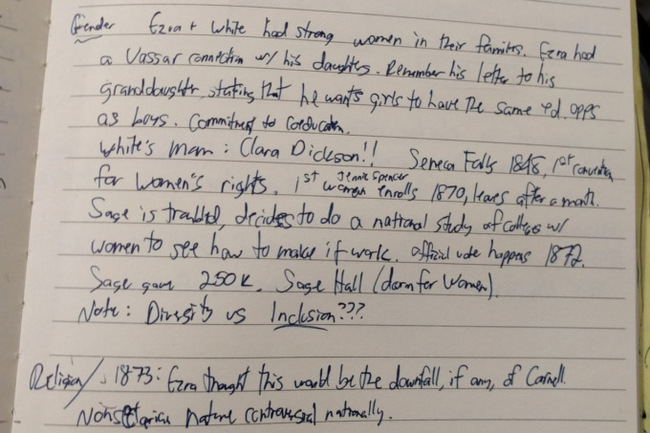 Gender Ezra + White had strong women in their families. Ezra had
a Vassar connection w/ his daughters. Remember his letter to his
granddaughter stating that he wants girls to have the same ed. opps
as boys. Commitment to coeducation.
White's mom: Clara Dickson!! Seneca Falls 1848, 1st convention
for women's rights. 1st woman enrolls 1870, leaves after a month.
Jennie Spencer
Sage is troubled, decides to do a national study of colleges w/
women to see how to make it work. Official vote happens 1872.
Sage gave 250K. Sage Hall (dorm for women).
Note: Diversity vs Inclusion???
Religion/ 1873: Ezra thought this would be the downfall, if any, of Cornell.
Nonsectarian nature controversial nationally.